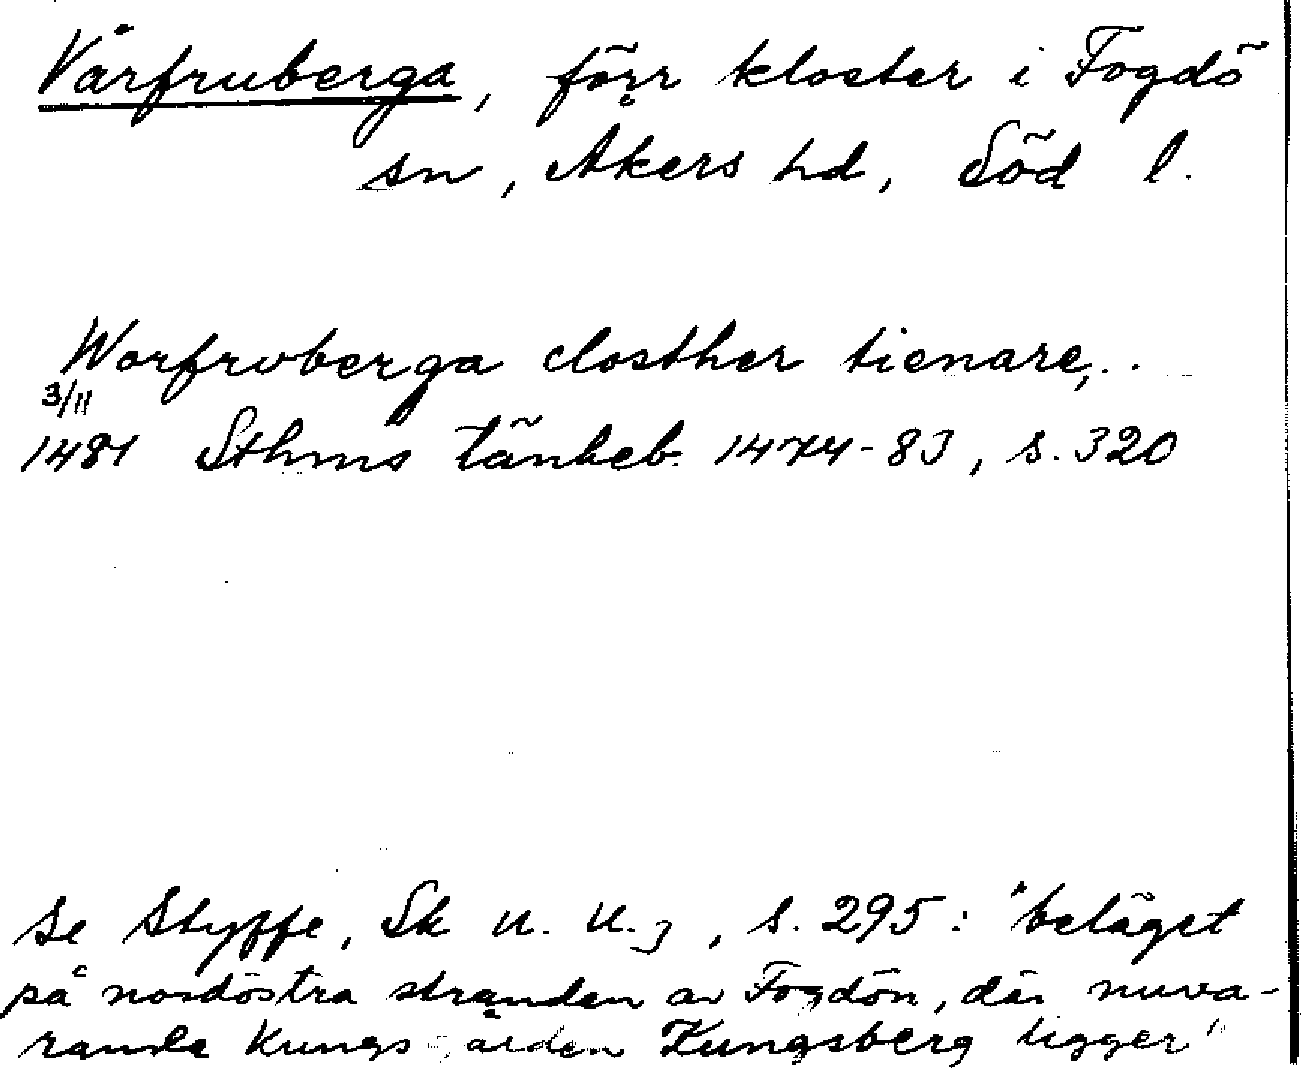 Vårfruberga, förr kloster i Fogdö
sn, Åkers hd, Söd l.
Worfrvberga closther tienare,..
3/11
1481 Sthms tänkeb. 1474-83, s. 320
Se Styffe, Sk u. U.3, s. 295: "beläget
på nordöstra stranden av Fogdön, där nuva-
rande Kungsgården Kungsberg ligger"